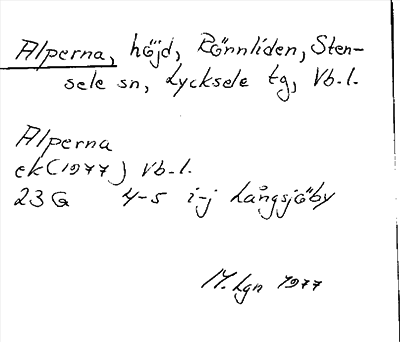 Alperna, höjd, Rönnliden, Sten-
sele sn, Lycksele tg, Vb.l.
Alperna
ek (1977) Vb.l.
23 G 4-5 i-j Långsjöby
M. Lgn 1977